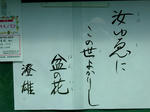 汝ゆゑに
この世よかりし
盆の花
澄雄